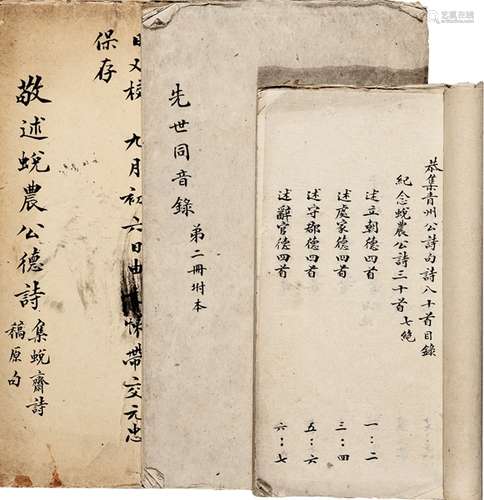 恭集青州公詩句詩八十首目錄
紀念蛻農公詩三十首 七絕
述立朝德四首 一:二
述處家德四首 三:四
述守郡德四首 五:六
述辭官德四首 六:七
先世同音錄 第二冊坿本
日又校 九月初六日由 帶交元忠
保存
敬述蛻農公德詩
集蛻齋詩
稿原句